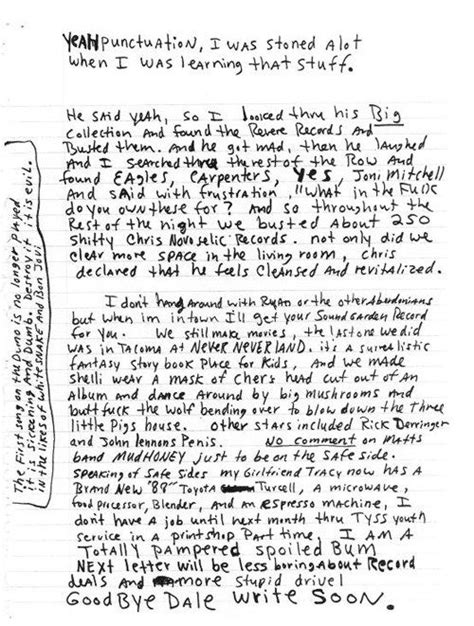 YEAH Punctuation, I was stoned alot
when I was learning that stuff.
He said yeah, so I looked thru his Big
collection and found the Revere Records and
Busted them. And he got mad, then he laughed
And I searched three the rest of the Row and
found EAgles, CArpenters, Yes, Joni Mitchell
And said with frustration, "What in the Fuck
do you own these for? And so throughout the
Rest of the night we busted About 250
Shitty Chris Novoselic Records. not only did we
clear more space in the living room, chris
declared that he feels cleansed and revitalized.
I dont hang around with Ryan or the other Aberdonians
but when im in town I'll get your Sound Garden Record
for you. We still make movies, the last one we did
was in Tacoma at NEVER NEVER LAND. it's a surrealistic
fantasy story book Place for Kids, And we made
Shelli wear A mask of cher's head cut out of An
Album and dance Around by big mushrooms and
buttfuck the wolf bending over to blow down the three
little Pigs house. other stars included Rick Derringer
and John lennons Penis. No comment on Matts
band MUDHONEY just to be on the safe side.
SPEAKing of safe sides my Girlfriend Tracy now has A
BRAnd New '88' Toyota Turcell, A microwave,
food processor, Blender, And an espresso machine, I
don't have A job until next month thru TYSS youth
service in a printshop Part time, I AM A
Totally pampered spoiled Bum
NEXT letter will be less boring About Record
deals And more stupid drivel
GoodBye Dale write soon.
The First song on the Demo is no longer Played
it is sickening And Dumb. Destroy it it is evil.
in the likes of WHITESNAKE and Bon Jovi